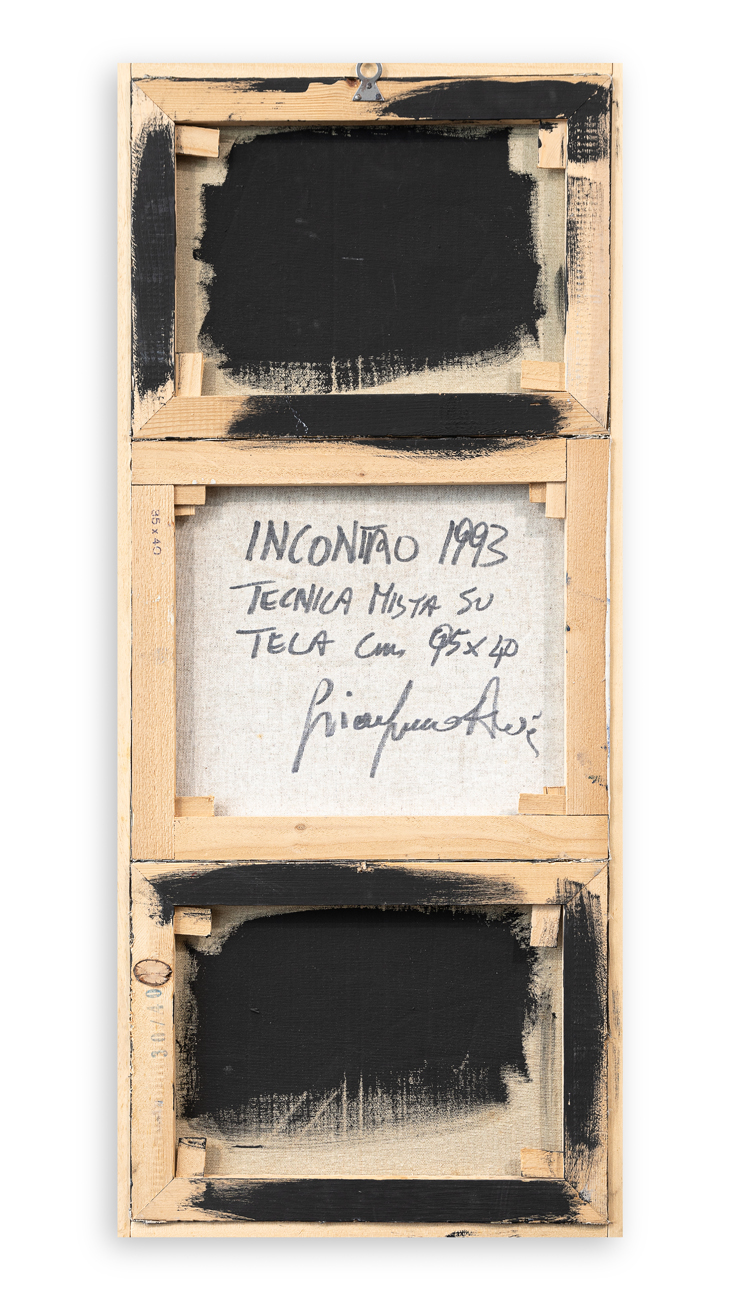 35 x 40
INCONTRO 1993
TECNICA MISTA SU
TELA Cm, 95x40
30/40